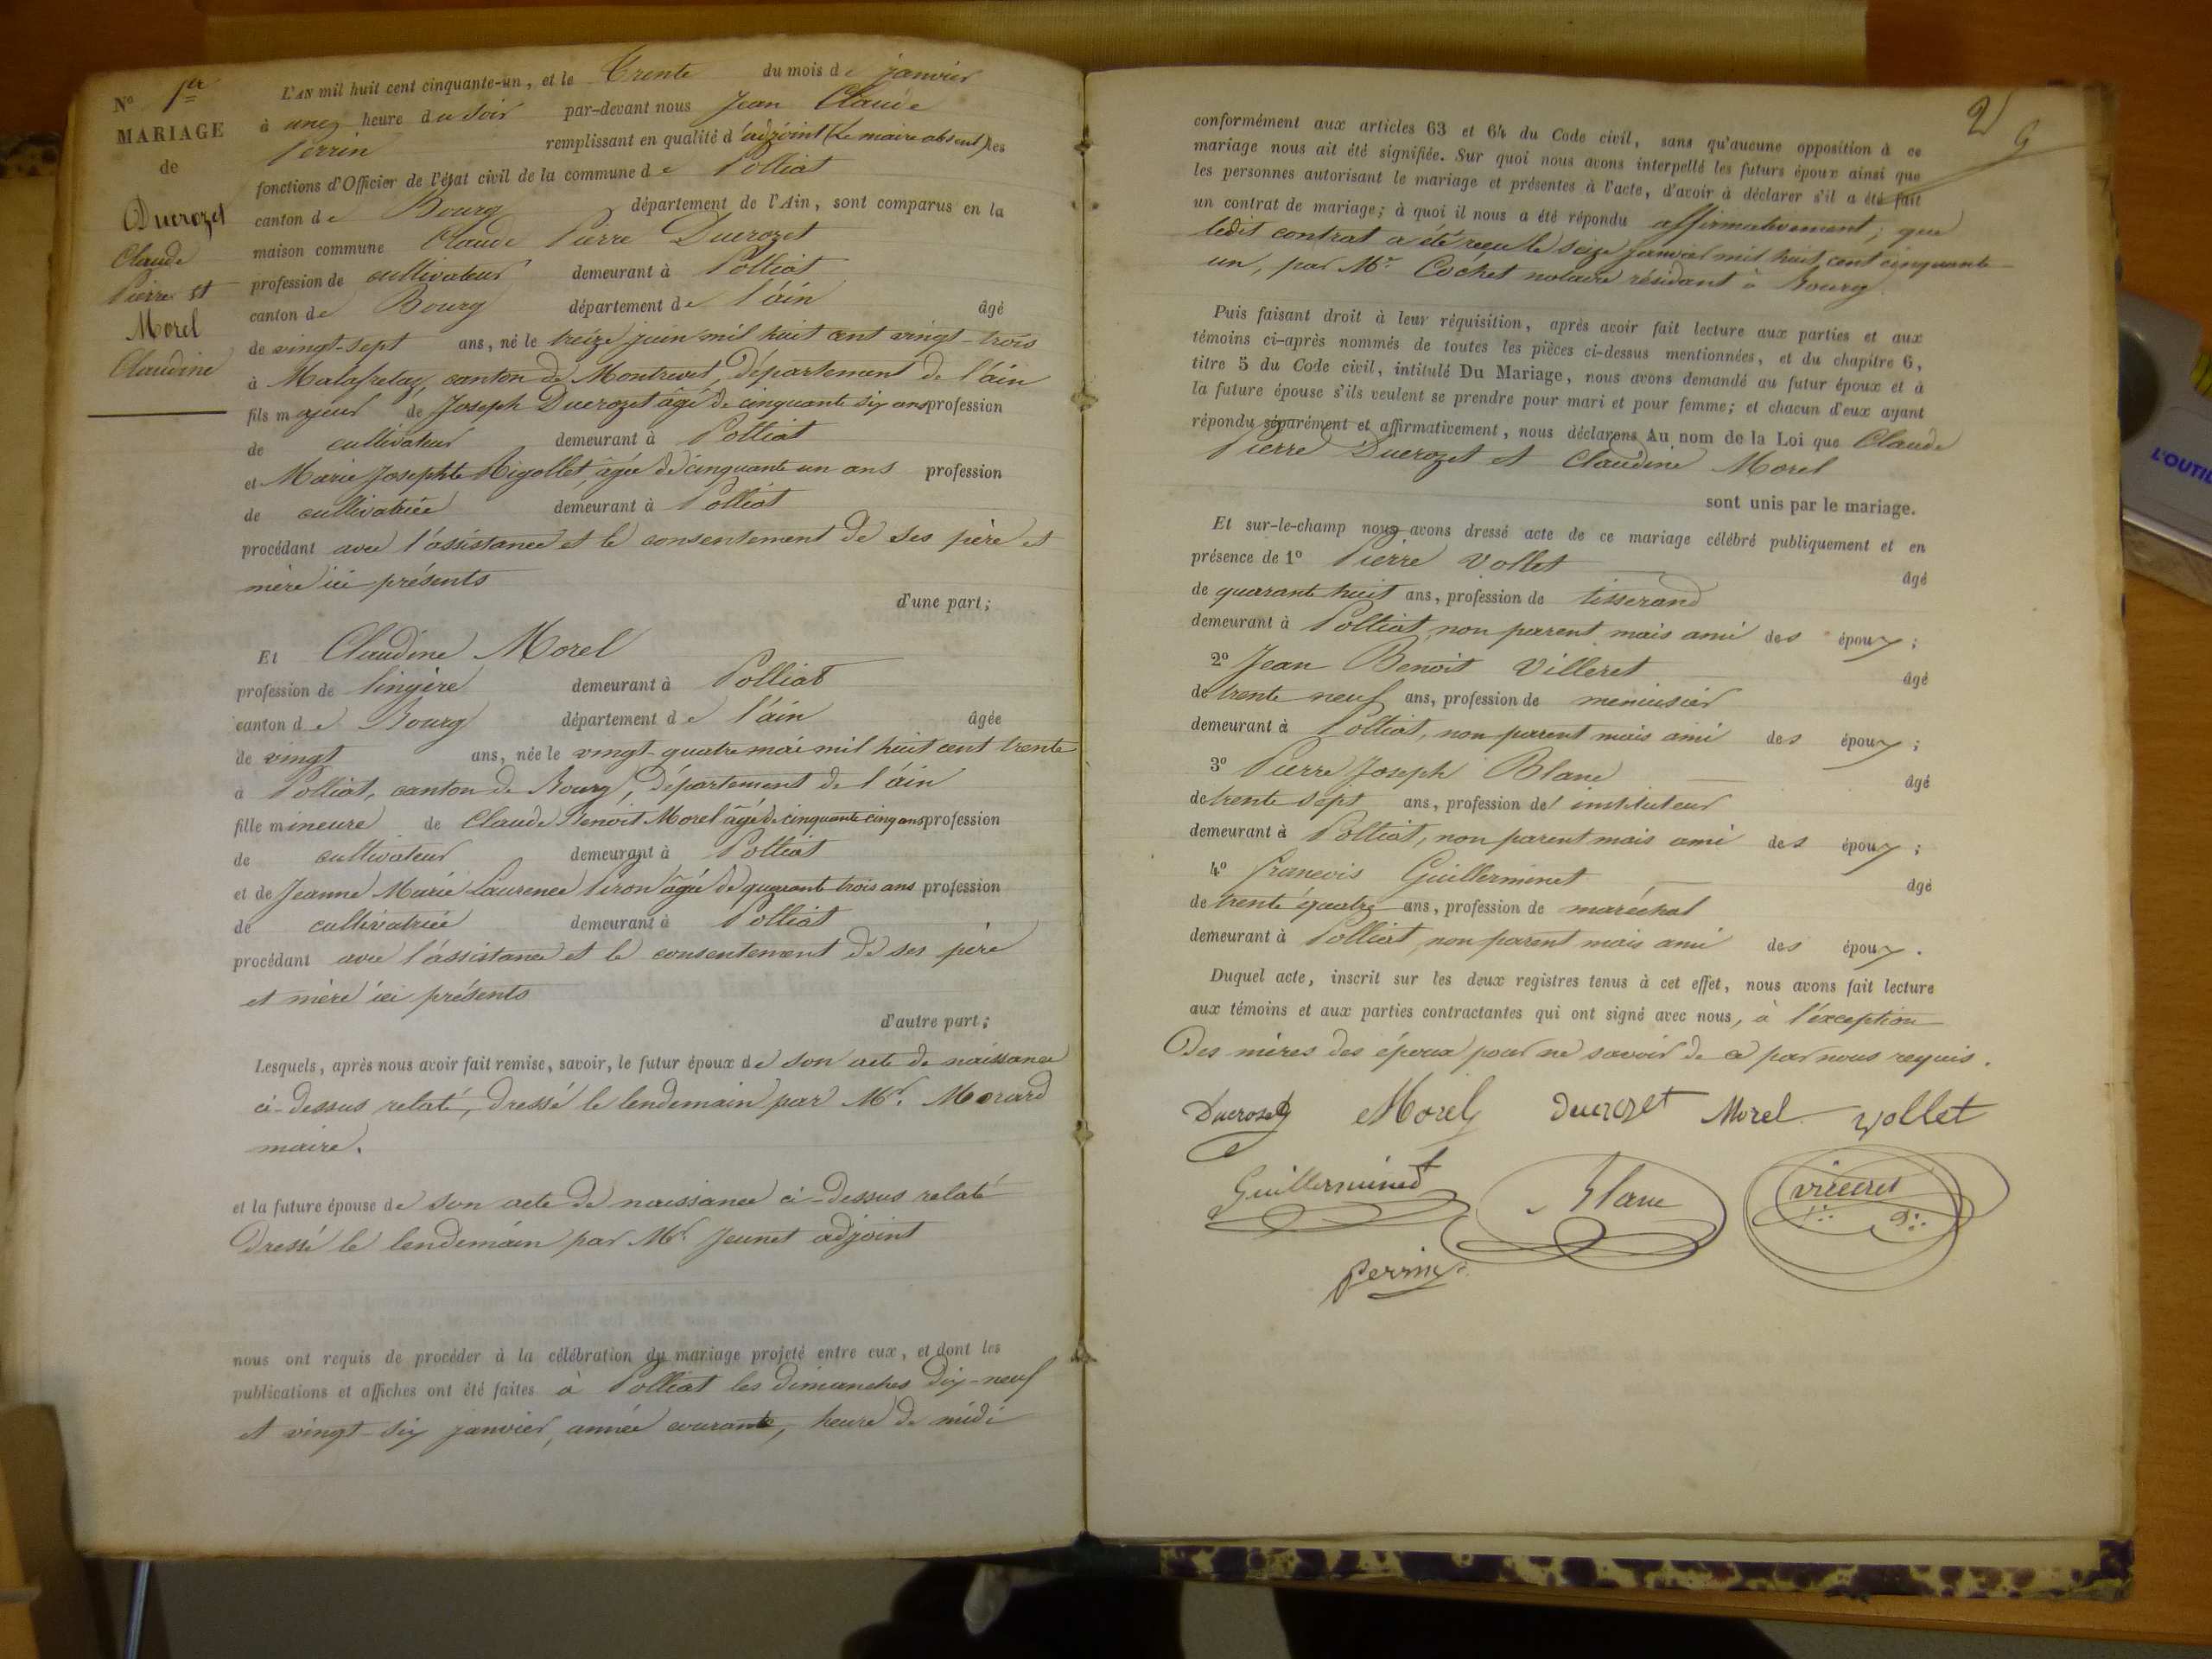 N° 1er
MARIAGE
de
Ducrozet
Claude
Pierre et
Morel
Claudine
L'AN mil huit cent cinquante-un, et le Trente du mois de janvier
à une heure du soir par-devant nous Jean Claude
Perrin remplissant en qualité d'adjoint (Le maire absent) les
fonctions d'Officier de l'état civil de la commune de Polliat
canton de Bourg département de l'Ain, sont comparus en la
maison commune Claude Pierre Ducrozet
profession de cultivateur demeurant à Polliat
canton de Bourg département de l'ain âgé
de vingt-sept ans, né le treize juin mil huit cent vingt-trois
à Malafretaz, canton de Montrevel, département de l'ain
fils majeur de Joseph Ducrozet âgé de cinquante six ans profession
de cultivateur demeurant à Polliat
et Marie Josephte Rigollet, âgée de cinquante un ans profession
de cultivatrice demeurant à Polliat
procédant avec l'assistance et le consentement de ses père et
mère ici présents
d'une part;
Et Claudine Morel
profession de lingère demeurant à Polliat
canton de Bourg département de l'ain âgée
de vingt ans, née le vingt-quatre mai mil huit cent trente
à Polliat, canton de Bourg, département de l'ain
fille mineure de Claude Benoit Morel âgé de cinquante cinq ans profession
de cultivateur demeurant à Polliat
et de Jeanne Marie Laurence Piron âgée de quarante trois ans profession
de cultivatrice demeurant à Polliat
procédant avec l'assistance et le consentement de ses père
et mère ici présents
d'autre part;
Lesquels, après nous avoir fait remise, savoir, le futur époux de son acte de naissance
ci-dessus relaté, dressé le lendemain par Mr. Morard
maire.
et la future épouse de son acte de naissance ci-dessus relaté
dressé le lendemain par Mr. Jeunet adjoint
nous ont requis de procéder à la célébration du mariage projeté entre eux, et dont les
publications et affiches ont été faites à Polliat les dimanches dix-neuf
et vingt-six janvier, année courante, heure de midi
2
conformément aux articles 63 et 64 du Code civil, sans qu'aucune opposition à ce
mariage nous ait été signifiée. Sur quoi nous avons interpellé les futurs époux ainsi que
les personnes autorisant le mariage et présentes à l'acte, d'avoir à déclarer s'il a été fait
un contrat de mariage; à quoi il nous a été répondu affirmativement; que
ledit contrat a été reçu le seize janvier mil huit cent cinquante
un, par Mr. Cochet notaire résidant à Bourg.
Puis faisant droit à leur réquisition, après avoir fait lecture aux parties et aux
témoins ci-après nommés de toutes les pièces ci-dessus mentionnées, et du chapitre 6,
titre 5 du Code civil, intitulé Du Mariage, nous avons demandé au futur époux et à
la future épouse s'ils veulent se prendre pour mari et pour femme; et chacun d'eux ayant
répondu séparément et affirmativement, nous déclarons Au nom de la Loi que Claude
Pierre Ducrozet et Claudine Morel
sont unis par le mariage.
Et sur-le-champ nous avons dressé acte de ce mariage célébré publiquement et en
présence de 1° Pierre Vollet âgé
de quarante huit ans, profession de tisserand
demeurant à Polliat non parent mais ami des époux;
2° Jean Benoit Villeret âgé
de trente neuf ans, profession de menuisier
demeurant à Polliat, non parent mais ami des époux;
3° Pierre Joseph Blanc âgé
de trente sept ans, profession de instituteur
demeurant à Polliat, non parent mais ami des époux;
4° francois Guillerminet âgé
de trente quatre ans, profession de maréchal
demeurant à Polliat, non parent mais ami des époux.
Duquel acte, inscrit sur les deux registres tenus à cet effet, nous avons fait lecture
aux témoins et aux parties contractantes qui ont signé avec nous, à l'exception
des mères des époux pour ne savoir de ce par nous requis.
Ducrozet Morel Ducrozet Morel vollet
Guillerminet Blanc Villeret
perrin
L'OUTIL